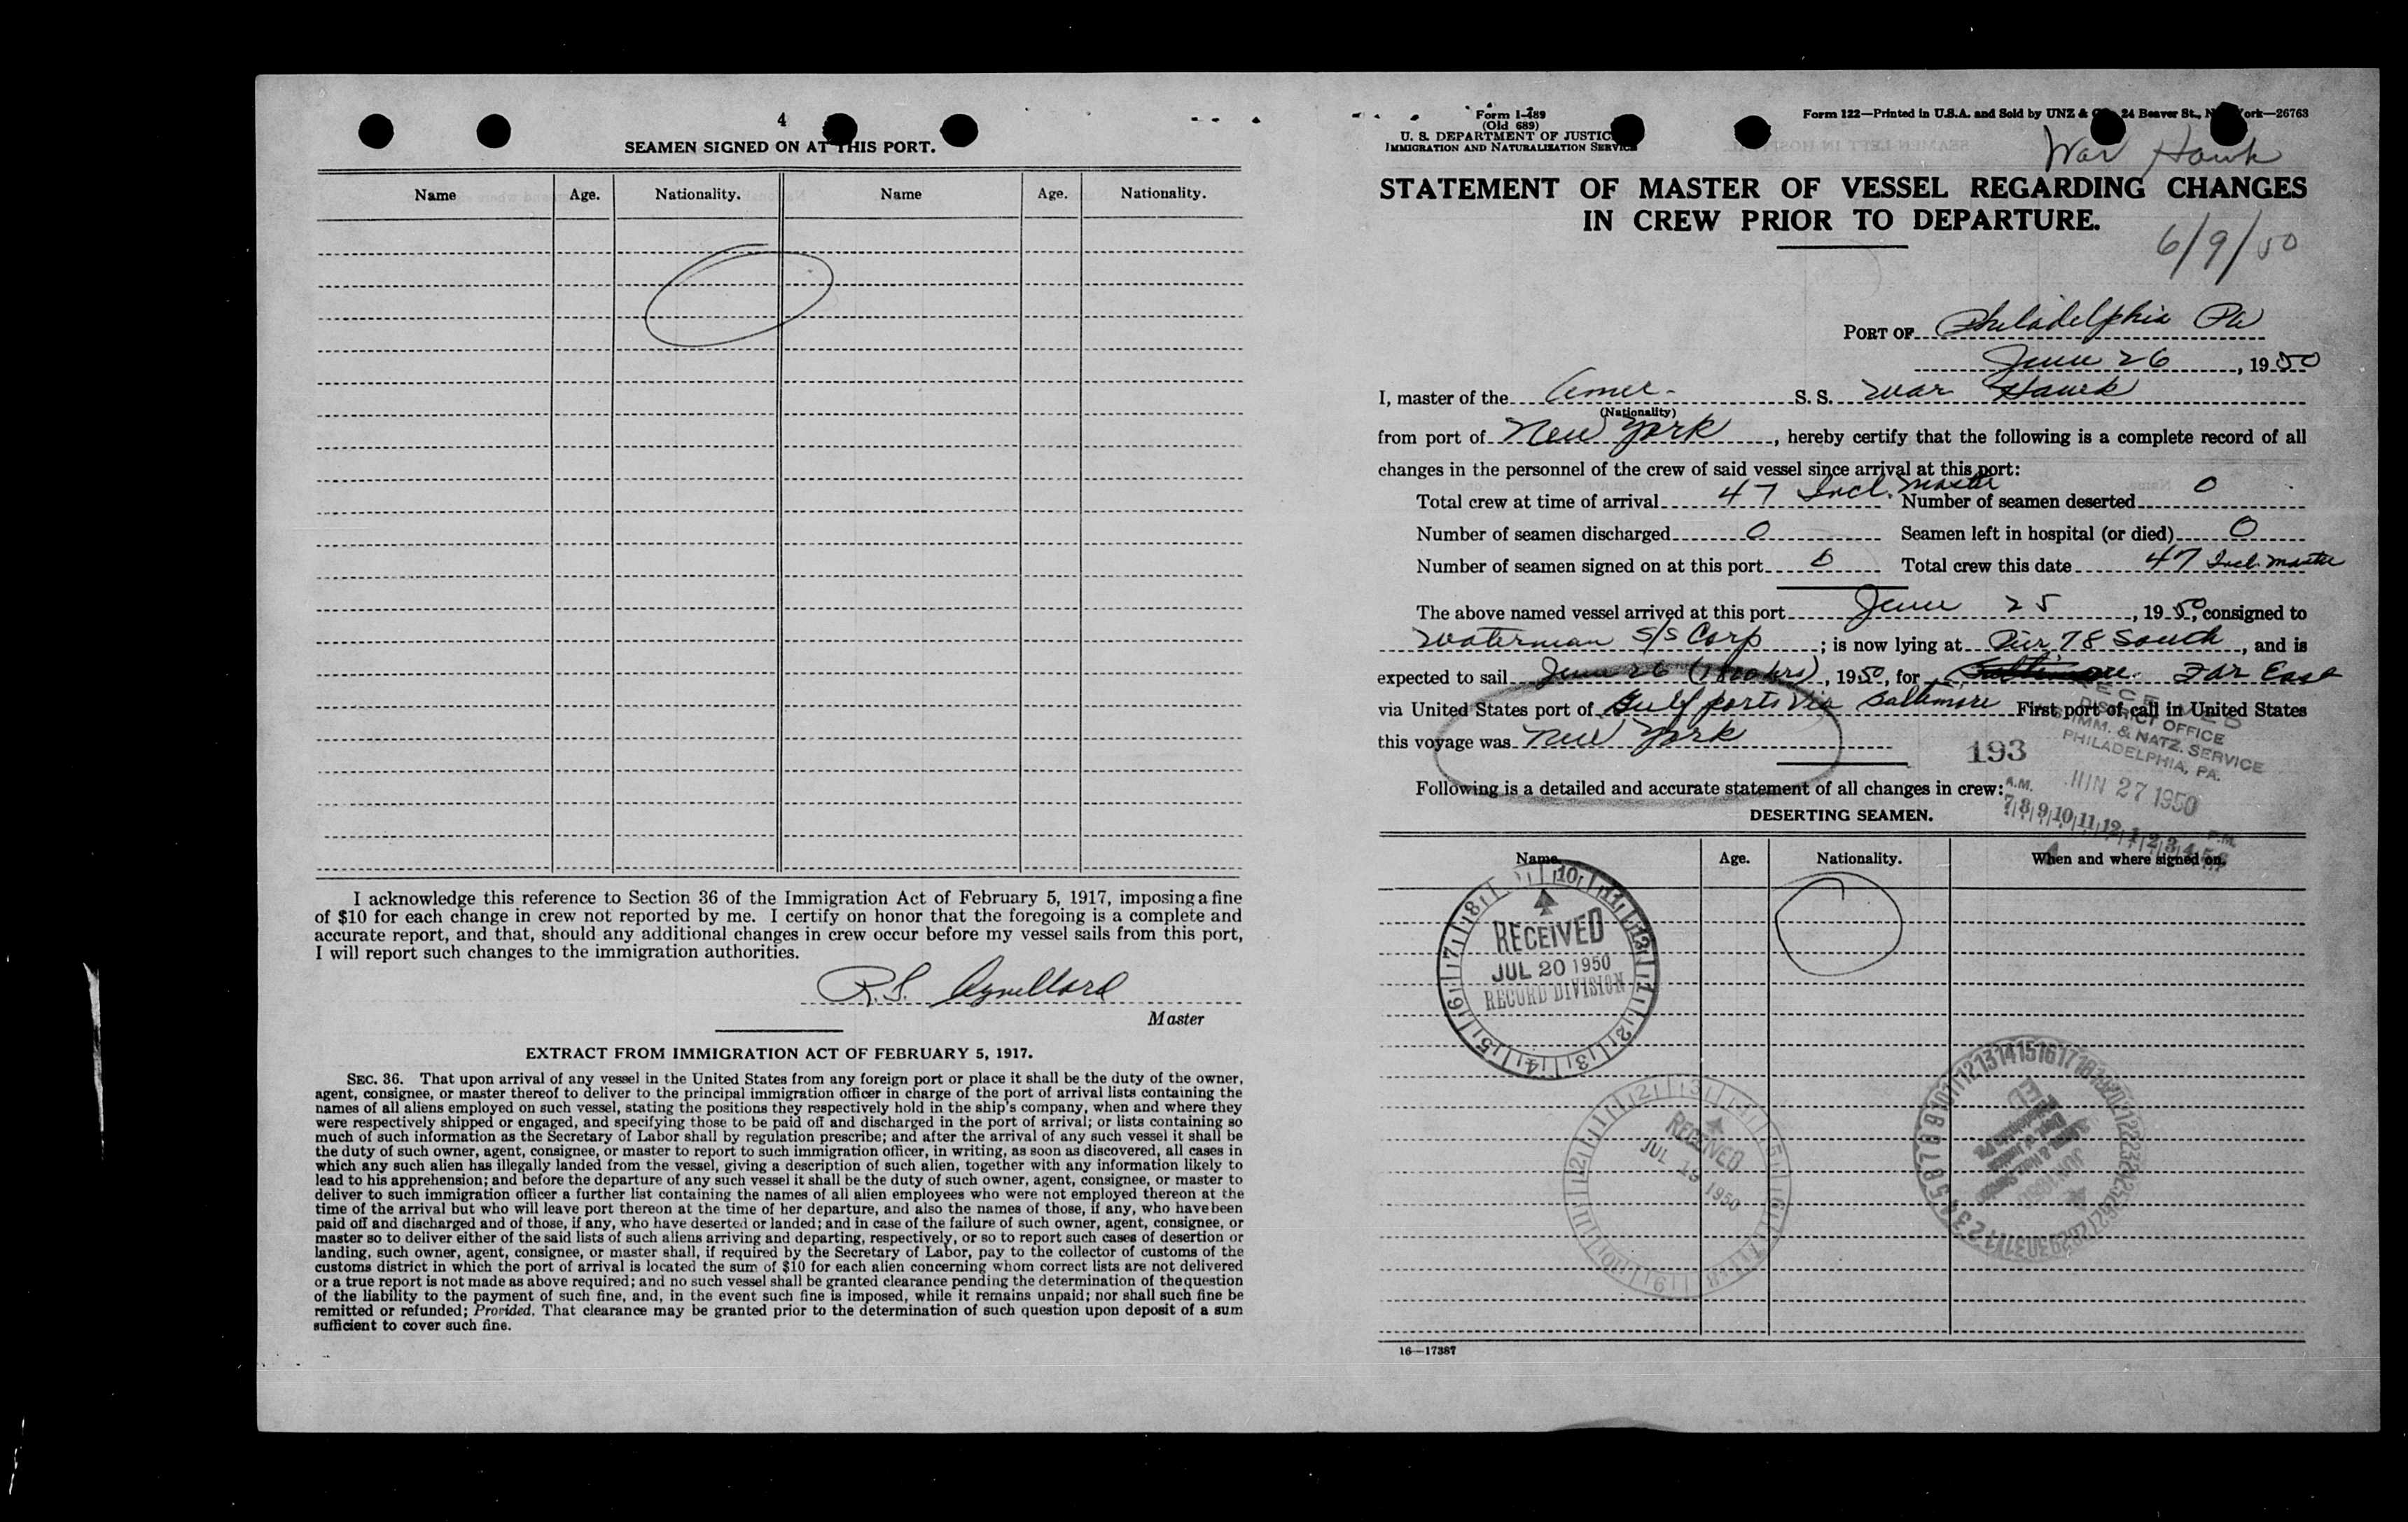 4
SEAMEN SIGNED ON AT THIS PORT.
Name Age. Nationality. Name Age. Nationality.
I acknowledge this reference to Section 36 of the Immigration Act of February 5, 1917, imposing a fine
of $10 for each change in crew not reported by me. I certify on honor that the foregoing is a complete and
accurate report, and that, should any additional changes in crew occur before my vessel sails from this port,
I will report such changes to the immigration authorities.
R.S.
Master
EXTRACT FROM IMMIGRATION ACT OF FEBRUARY 5, 1917.
SEC. 36. That upon arrival of any vessel in the United States from any foreign port or place it shall be the duty of the owner,
agent, consignee, or master thereof to deliver to the principal immigration officer in charge of the port of arrival lists containing the
names of all aliens employed on such vessel, stating the positions they respectively hold in the ship's company, when and where they
were respectively shipped or engaged, and specifying those to be paid off and discharged in the port of arrival; or lists containing so
much of such information as the Secretary of Labor shall by regulation prescribe; and after the arrival of any such vessel it shall be
the duty of such owner, agent, consignee, or master to report to such immigration officer, in writing, as soon as discovered, all cases in
which any such alien has illegally landed from the vessel, giving a description of such alien, together with any information likely to
lead to his apprehension; and before the departure of any such vessel it shall be the duty of such owner, agent, consignee, or master to
deliver to such immigration officer a further list containing the names of all alien employees who were not employed thereon at the
time of the arrival but who will leave port thereon at the time of her departure, and also the names of those, if any, who have been
paid off and discharged and of those, if any, who have deserted or landed; and in case of the failure of such owner, agent, consignee, or
master so to deliver either of the said lists of such aliens arriving and departing, respectively, or so to report such cases of desertion or
landing, such owner, agent, consignee, or master shall, if required by the Secretary of Labor, pay to the collector of customs of the
customs district in which the port of arrival is located the sum of $10 for each alien concerning whom correct lists are not delivered
or a true report is not made as above required; and no such vessel shall be granted clearance pending the determination of the question
of the liability to the payment of such fine, and, in the event such fine is imposed, while it remains unpaid; nor shall such fine be
remitted or refunded; Provided, That clearance may be granted prior to the determination of such question upon deposit of a sum
sufficient to cover such fine.
Form I-489
(Old 689)
U. S. DEPARTMENT OF JUSTICE
IMMIGRATION AND NATURALIZATION SERVICE
Form 122—Printed in U.S.A. and Sold by UNZ & Co., 24 Beaver St., New York—26763
War Hawk
STATEMENT OF MASTER OF VESSEL REGARDING CHANGES
IN CREW PRIOR TO DEPARTURE.
6/9/50
PORT OF Philadelphia Pa
June 26, 1950
I, master of the Amer. S. S. War Hawk
(Nationality)
from port of New York, hereby certify that the following is a complete record of all
changes in the personnel of the crew of said vessel since arrival at this port:
Total crew at time of arrival 47 Incl. Master Number of seamen deserted 0
Number of seamen discharged 0 Seamen left in hospital (or died) 0
Number of seamen signed on at this port 0 Total crew this date 47 Incl. Master
The above named vessel arrived at this port June 25, 1950, consigned to
Waterman S/S Corp; is now lying at Pier 78 South, and is
expected to sail June 26 (1800 hrs), 1950, for Baltimore Far East
via United States port of Gulf ports via Baltimore First port of call in United States
this voyage was New York
193
RECEIVED
DISTRICT OFFICE
IMM. & NATZ. SERVICE
PHILADELPHIA, PA.
JUN 27 1950
A.M. P.M.
7 8 9 10 11 12 1 2 3 4 5 6
Following is a detailed and accurate statement of all changes in crew:
DESERTING SEAMEN.
Name. Age. Nationality. When and where signed on.
RECEIVED
JUL 20 1950
RECORD DIVISION
RECEIVED
JUL 1950
16—17387